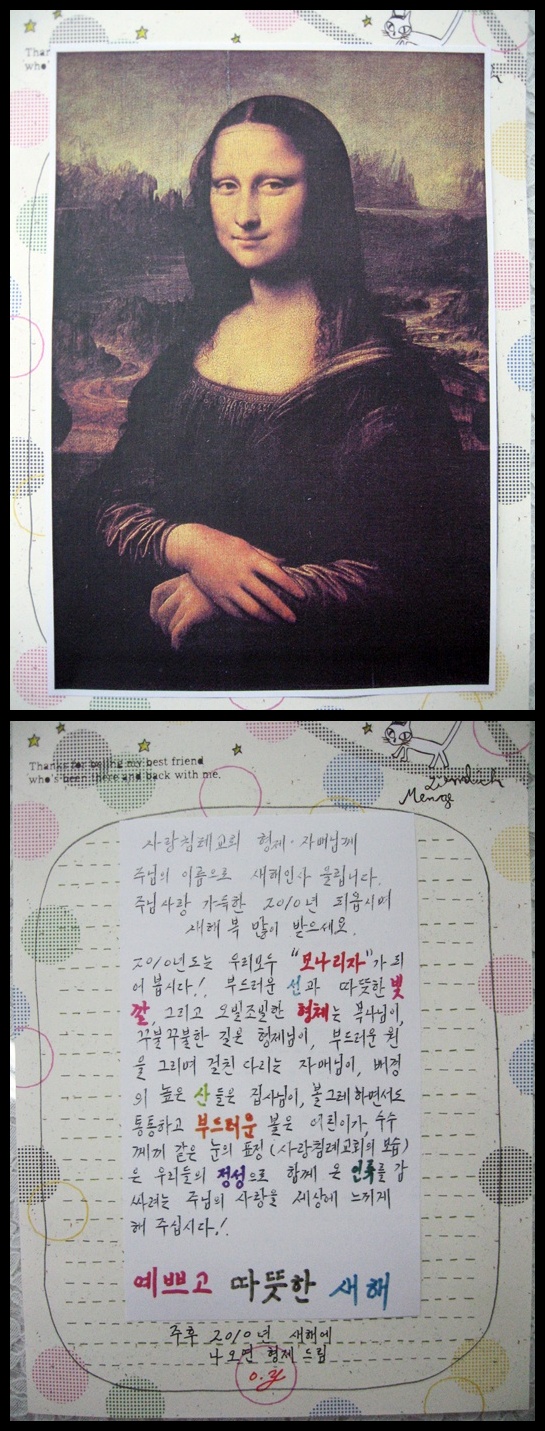 Than
who'
Thanks for being my best friend
who's been there and back with me.
사랑침례교회 형제·자매님께
주님의 이름으로 새해인사 올립니다.
주님사랑 가득한 2010년 되옵시며
새해 복 많이 받으세요.
2010년도는 우리모두 "모나리자"가 되
어 봅시다!. 부드러운 선과 따뜻한 빛
깔, 그리고 오밀조밀한 형체는 목사님이,
꾸불꾸불한 길은 형제님이, 부드러운 원
을 그리며 걸친 다리는 자매님이, 배경
의 높은 산들은 집사님이, 볼그레하면서도
통통하고 부드러운 볼은 어린이가, 수수
께끼 같은 눈의 표정(사랑침례교회의 모습)
은 우리들의 정성으로 함께 온 인류를 감
싸려는 주님의 사랑을 세상에 느끼게
해 주십시다!.
예쁘고 따뜻한 새해
주후 2010년 새해에
나오면 형제 드림
o.y